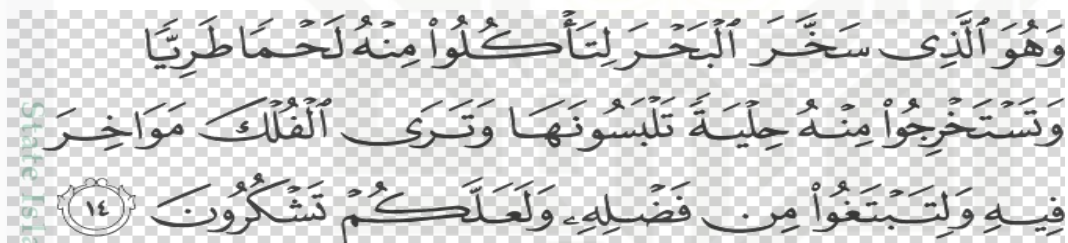 وَهُوَ ٱلَّذِى سَخَّرَ ٱلْبَحْرَ لِتَأْكُلُوا۟ مِنْهُ لَحْمًا طَرِيًّا
وَتَسْتَخْرِجُوا۟ مِنْهُ حِلْيَةً تَلْبَسُونَهَا وَتَرَى ٱلْفُلْكَ مَوَاخِرَ
فِيهِ وَلِتَبْتَغُوا۟ مِن فَضْلِهِۦ وَلَعَلَّكُمْ تَشْكُرُونَ ١٤